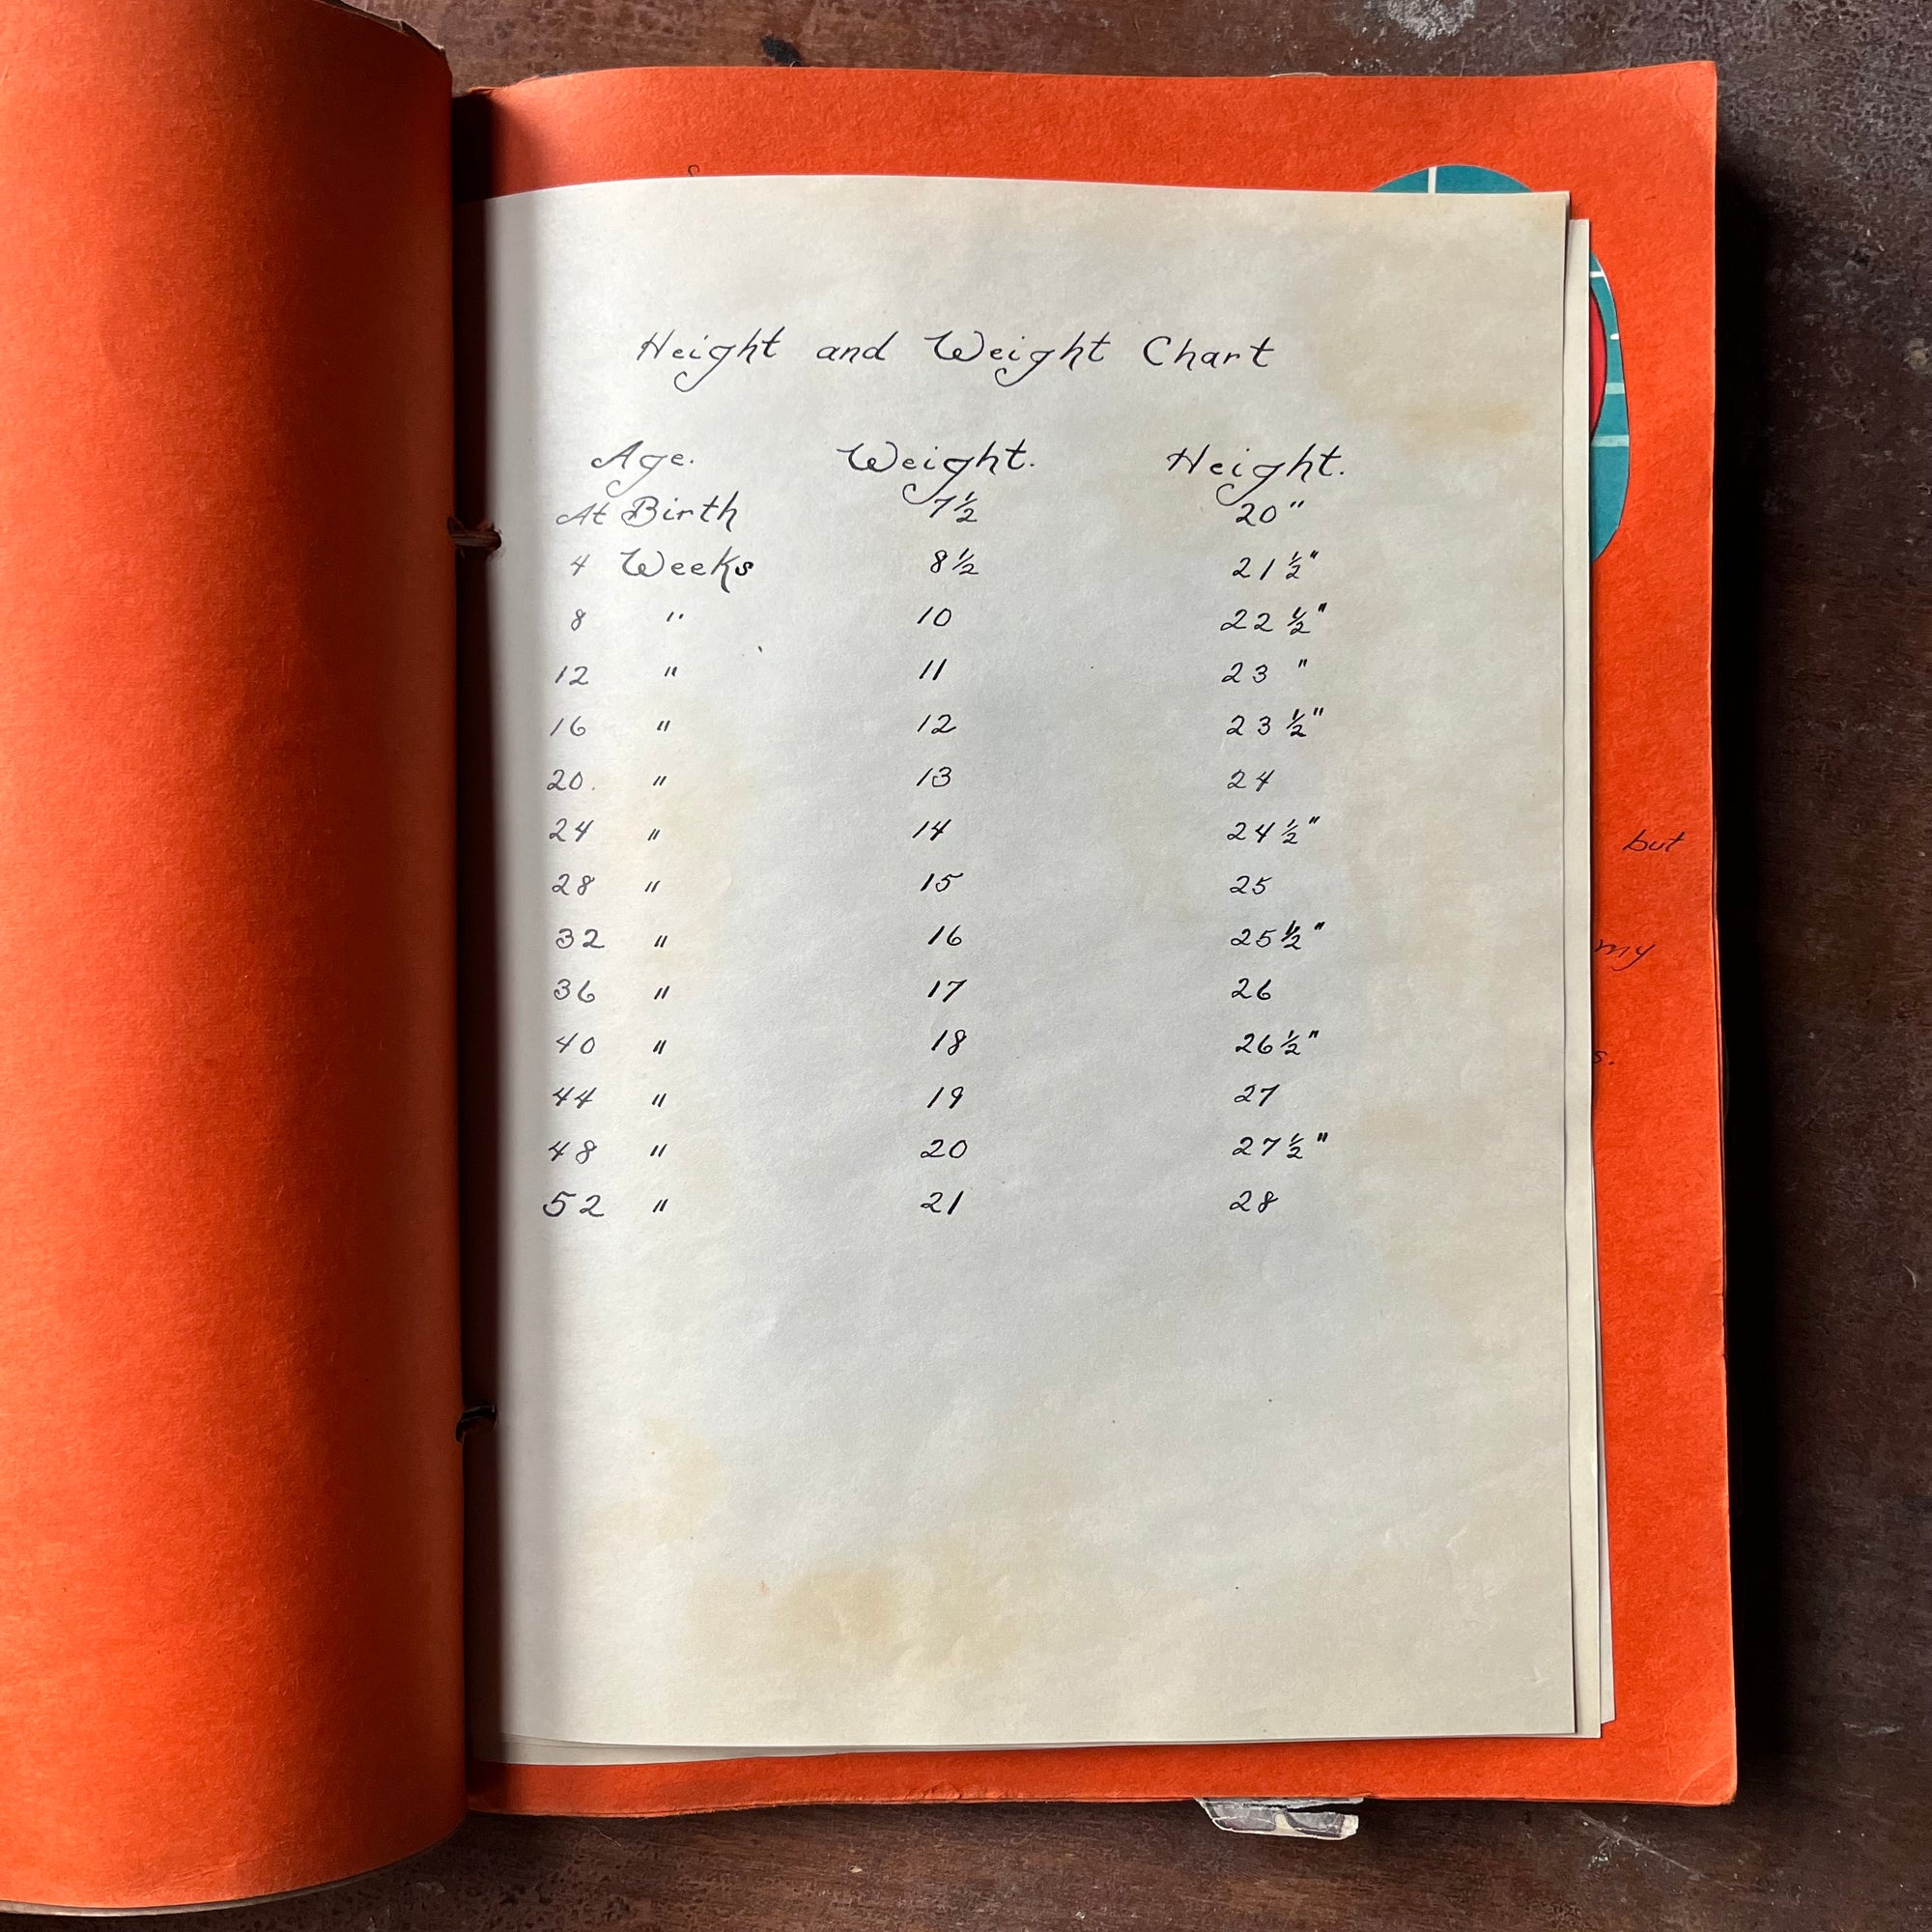 Height and Weight Chart
Age. Weight. Height.
At Birth 7½ 20"
4 Weeks 8½ 21½"
8 " 10 22½"
12 " 11 23 "
16 " 12 23½"
20. " 13 24
24 " 14 24½"
28 " 15 25
32 " 16 25½"
36 " 17 26
40 " 18 26½"
44 " 19 27
48 " 20 27½"
52 " 21 28
but
my
s.